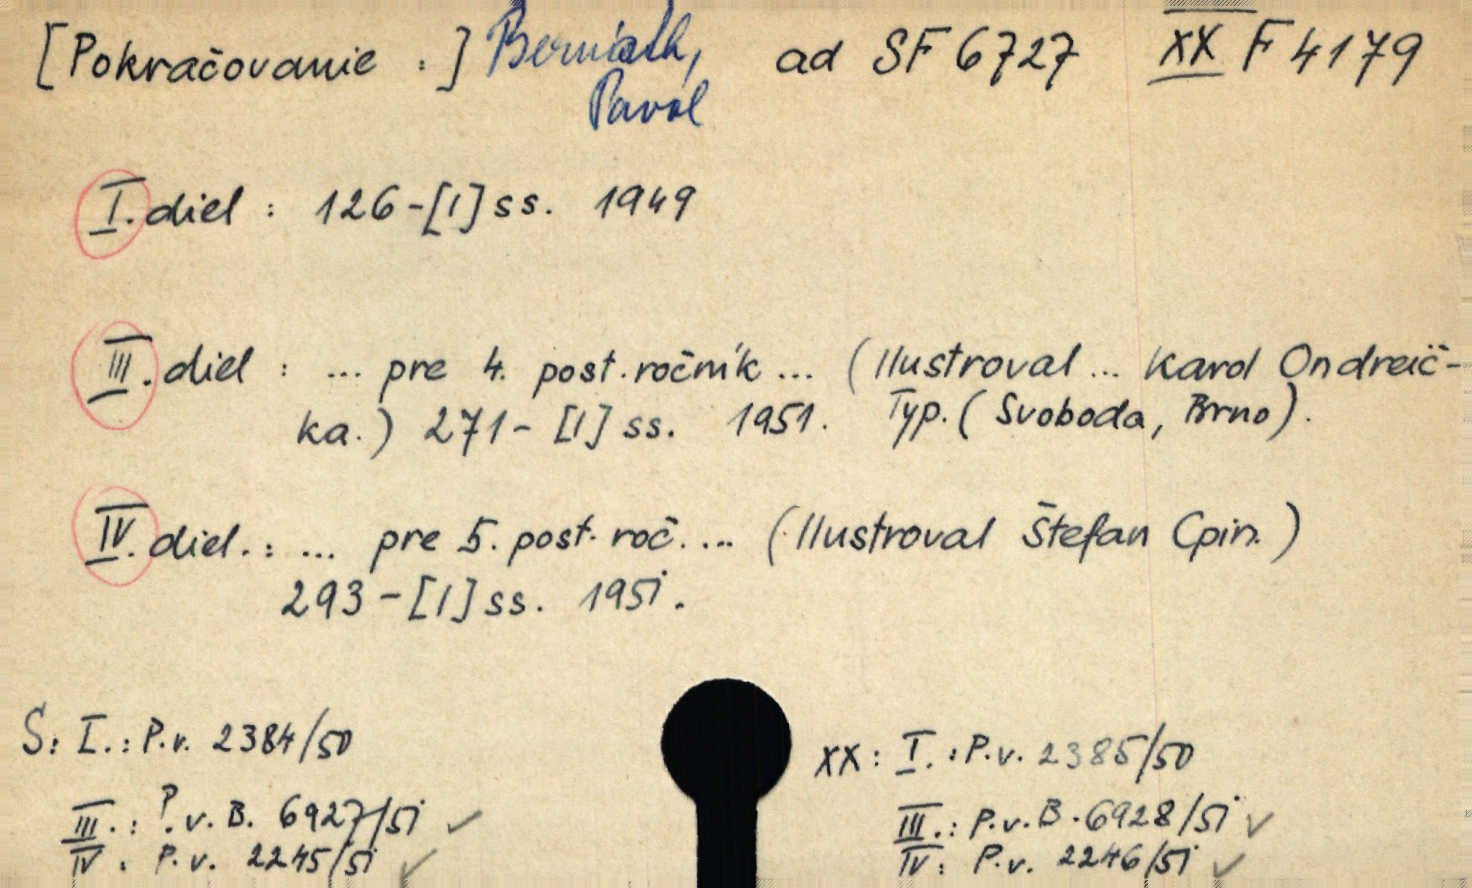 [Pokračovanie :] Berniath, ad SF 6727 XX F 4179
Pavol
I. diel : 126-[1] ss. 1949
III. diel : ... pre 4. post. ročník ... (Ilustroval ... Karol Ondreič-
ka.) 271-[1] ss. 1951. Typ. (Svoboda, Brno).
IV. diel. : ... pre 5. post. roč. ... (Ilustroval Štefan Cpin.)
293-[1] ss. 1951.
S: I. : P.v. 2384/50
III. : P.v. B. 6927/51 ✓
IV : P.v. 2245/51 ✓
XX : I. : P.v. 2385/50
III. : P.v. B. 6928/51 ✓
IV : P.v. 2246/51 ✓